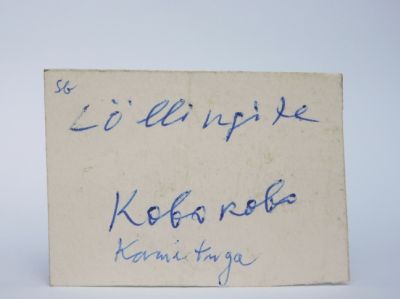 SG
Löllingite
Kobokobo
Kamituga